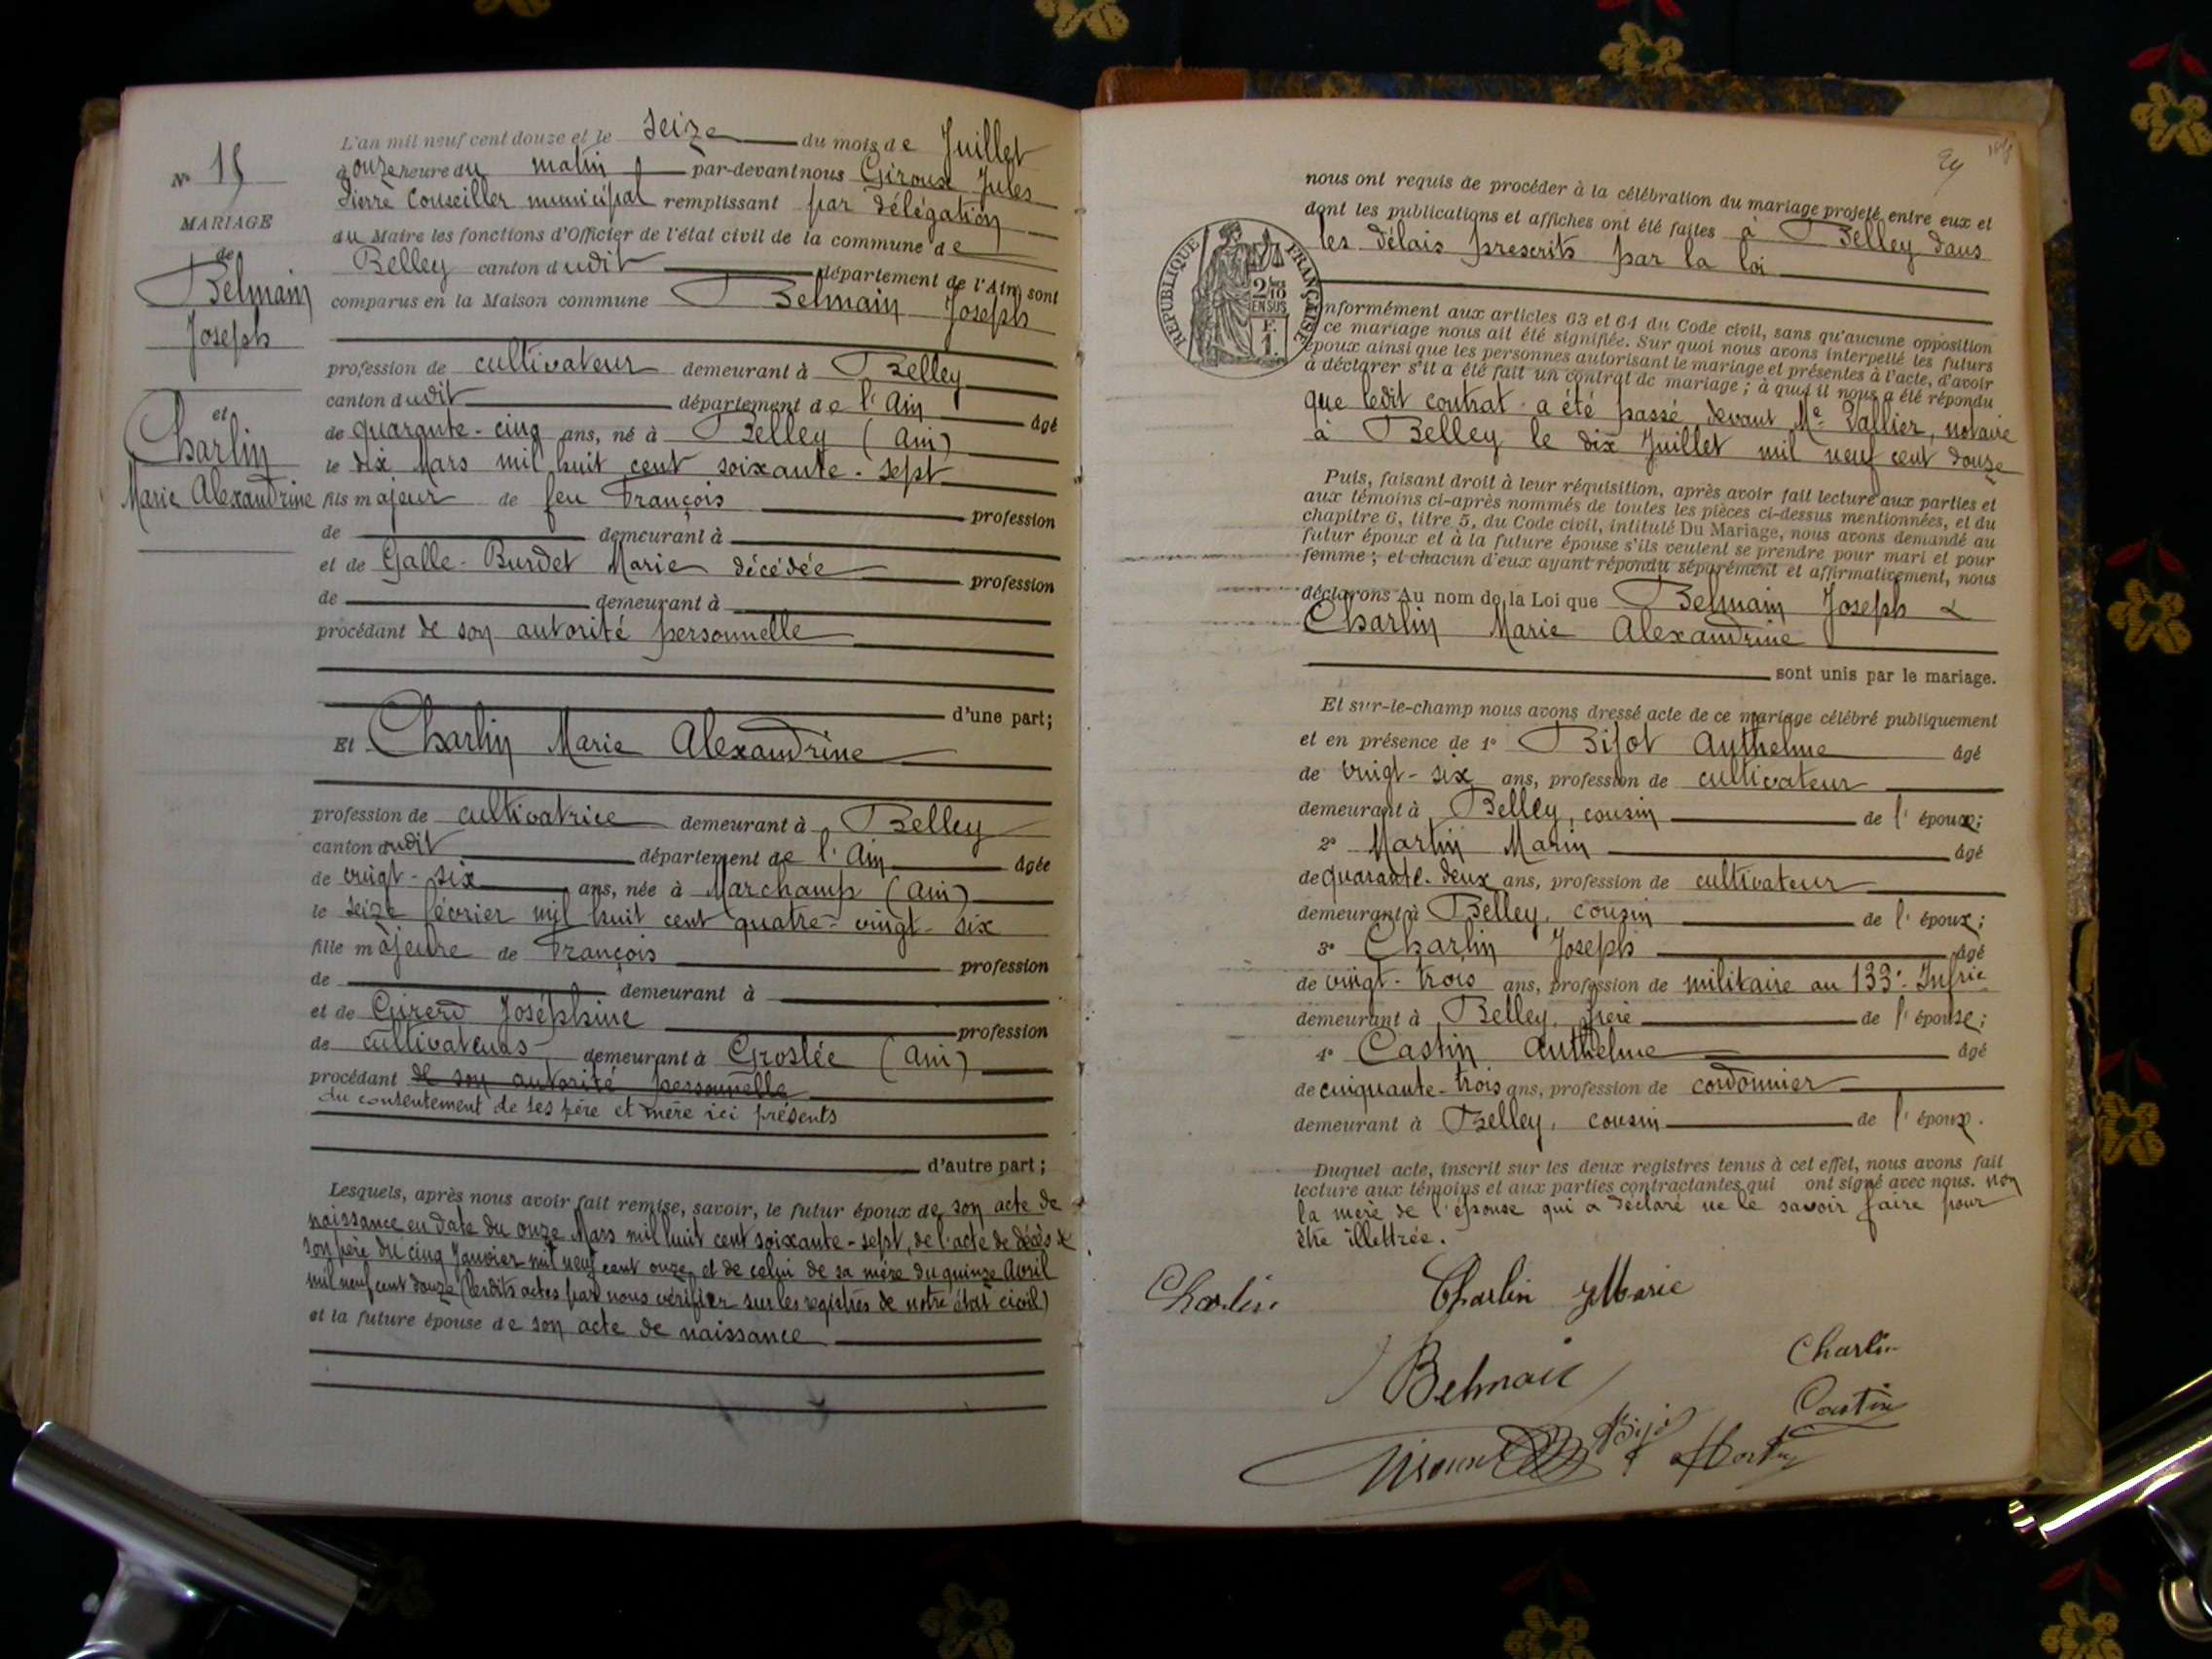 L'an mil neuf cent douze et le seize du mois de Juillet
à onze heure du matin par-devant nous Giroux Jules
Pierre Conseiller municipal remplissant par délégation
du Maire les fonctions d'Officier de l'état civil de la commune de
Belley canton dudit département de l'Ain, sont
comparus en la Maison commune Belmain Joseph
N° 15
MARIAGE
de
Belmain
Joseph
et
Charlin
Marie Alexandrine
profession de cultivateur demeurant à Belley
canton dudit département de l'Ain âgé
de quarante-cinq ans, né à Belley (Ain)
le dix Mars mil huit cent soixante-sept
fils majeur de feu François profession
de demeurant à
et de Galle-Burdet Marie décédée profession
de demeurant à
procédant de son autorité personnelle
d'une part;
Et Charlin Marie Alexandrine
profession de cultivatrice demeurant à Belley
canton dudit département de l'Ain âgée
de vingt-six ans, née à Marchamp (Ain)
le seize février mil huit cent quatre-vingt-six
fille majeure de François profession
de demeurant à
et de Girerd Joséphine profession
de cultivateurs demeurant à Groslée (Ain)
procédant de son autorité personnelle
du consentement de ses père et mère ici présents
d'autre part;
Lesquels, après nous avoir fait remise, savoir, le futur époux de son acte de
naissance en date du onze Mars mil huit cent soixante-sept, de l'acte de décès de
son père du cinq Janvier mil neuf cent onze, et de celui de sa mère du quinze Avril
mil neuf cent douze (lesdits actes par nous vérifier sur les registres de notre état civil)
et la future épouse de son acte de naissance
24
nous ont requis de procéder à la célébration du mariage projeté entre eux et
dont les publications et affiches ont été faites à Belley dans
les délais prescrits par la loi
RÉPUBLIQUE FRANÇAISE
2/10
EN SUS
F.
1.
conformément aux articles 63 et 64 du Code civil, sans qu'aucune opposition
ce mariage nous ait été signifiée. Sur quoi nous avons interpellé les futurs
époux ainsi que les personnes autorisant le mariage et présentes à l'acte, d'avoir
à déclarer s'il a été fait un contrat de mariage; à quoi il nous a été répondu
que ledit contrat a été passé devant Me Vallier, notaire
à Belley le dix Juillet mil neuf cent douze
Puis, faisant droit à leur réquisition, après avoir fait lecture aux parties et
aux témoins ci-après nommés de toutes les pièces ci-dessus mentionnées, et du
chapitre 6, titre 5, du Code civil, intitulé Du Mariage, nous avons demandé au
futur époux et à la future épouse s'ils veulent se prendre pour mari et pour
femme; et chacun d'eux ayant répondu séparément et affirmativement, nous
déclarons Au nom de la Loi que Belmain Joseph &
Charlin Marie Alexandrine
sont unis par le mariage.
Et sur-le-champ nous avons dressé acte de ce mariage célébré publiquement
et en présence de 1° Bijot Anthelme âgé
de vingt-six ans, profession de cultivateur
demeurant à Belley, cousin de l'époux;
2° Martin Marin âgé
de quarante-deux ans, profession de cultivateur
demeurant à Belley, cousin de l'époux;
3° Charlin Joseph âgé
de vingt-trois ans, profession de militaire au 133e Infrie
demeurant à Belley, frère de l'épouse;
4° Castin Anthelme âgé
de cinquante-trois ans, profession de cordonnier
demeurant à Belley, cousin de l'époux.
Duquel acte, inscrit sur les deux registres tenus à cet effet, nous avons fait
lecture aux témoins et aux parties contractantes qui ont signé avec nous. non
la mère de l'épouse qui a déclaré ne le savoir faire pour
être illettrée.
Charlin Charlin Marie
Belmain Charlin
Castin
Giroux Bijot Martin